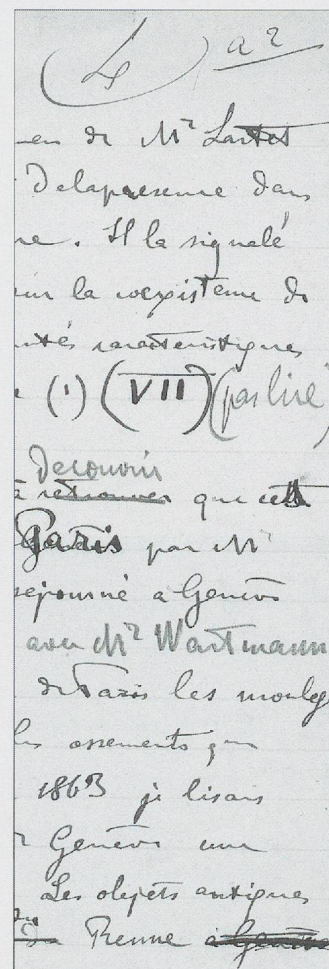 (4) a2
en de Mr Lartet
De la presence dans
re. Il la signalé
sur la coexistence de
ités caracteristiques
(1) (VII) (pas lire)
Decouvrir
à retrouver que
Paris par Mr
sejourné à Genève
avec Mr Wartmann
de Paris les moulg
les ossements que
1863 je lisais
Genève une
Les objets antiques
Du Renne à Genève